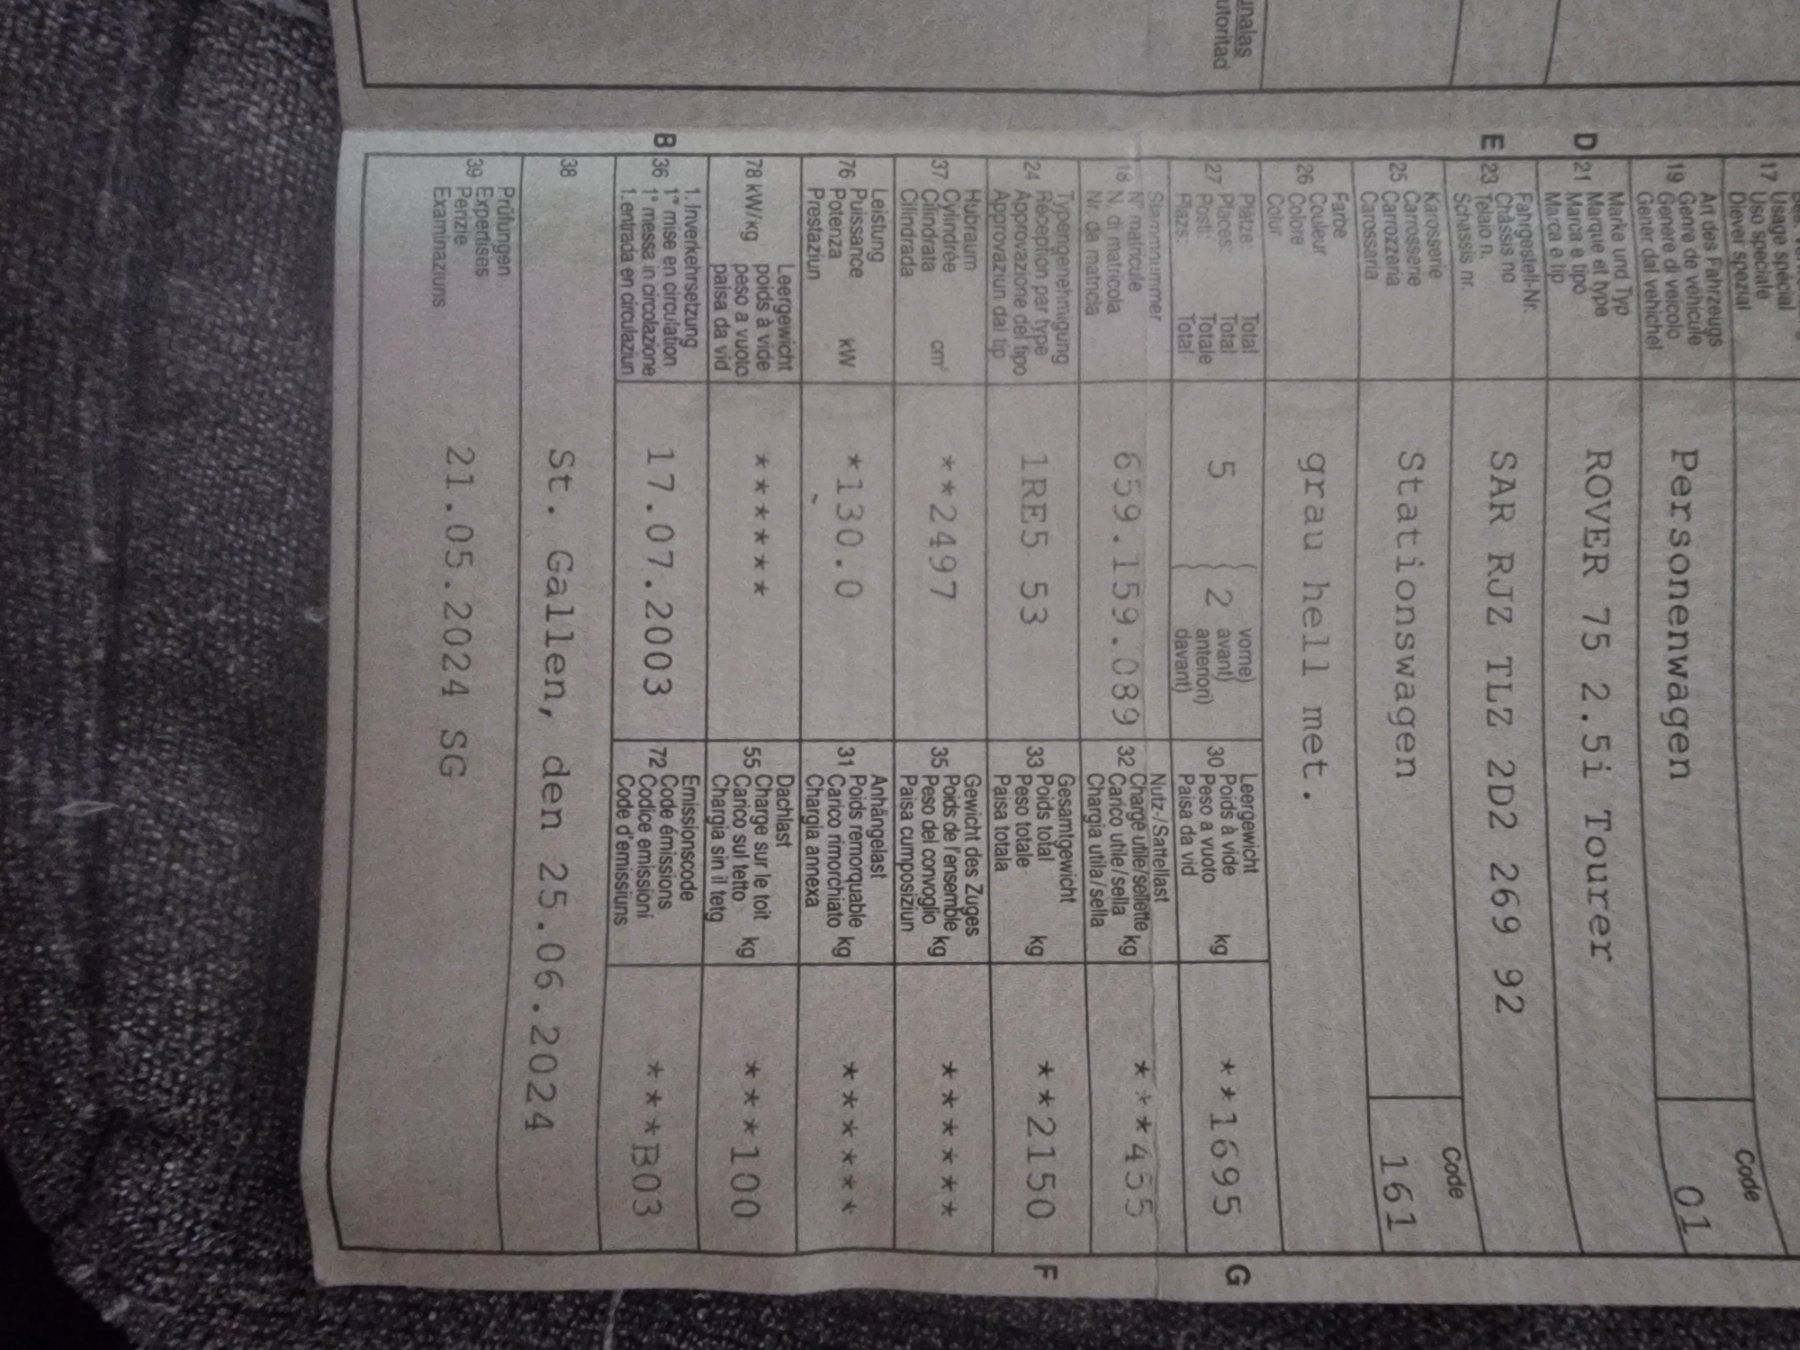 unalas
utoritad
17 Usage special
Uso speciale
Diever spezial
Code
Art des Fahrzeugs
19 Genre de véhicule
Genere di veicolo
Gener dal vehichel
Personenwagen
01
D
21 Marke und Typ
Marque et type
Marca e tipo
Marca e tip
ROVER 75 2.5i Tourer
E
23 Fahrgestell-Nr.
Châssis no
Telaio n.
Schassis nr.
SAR RJZ TLZ 2D2 269 92
Code
25 Karosserie
Carrosserie
Carrozzeria
Carossaria
Stationswagen
161
26 Farbe
Couleur
Colore
Color
grau hell met.
27 Plätze: Total
Places: Total
Posti: Totale
Plazs: Total
5
2
vorne)
avant)
anteriori)
davant)
30 Leergewicht
Poids à vide
Peso a vuoto kg
Paisa da vid
**1695
G
18 Stammnummer
N° matricule
N. di matricola
Nr. da matricla
659.159.089
32 Nutz-/Sattellast
Charge utile/sellette
Carico utile/sella kg
Chargia utila/sella
***455
24 Typengenehmigung
Réception par type
Approvazione del tipo
Approvaziun dal tip
1RE5 53
33 Gesamtgewicht
Poids total
Peso totale kg
Paisa totala
**2150
F
37 Hubraum
Cylindrée
Cilindrata cm³
Cilindrada
**2497
35 Gewicht des Zuges
Poids de l'ensemble
Peso del convoglio kg
Paisa cumposiziun
******
76 Leistung
Puissance
Potenza kW
Prestaziun
*130.0
31 Anhängelast
Poids remorquable
Carico rimorchiato kg
Chargia annexa
******
78 kW/kg
Leergewicht
poids à vide
peso a vuoto
paisa da vid
******
55 Dachlast
Charge sur le toit
Carico sul tetto kg
Chargia sin il tetg
***100
B
36 1. Inverkehrsetzung
1re mise en circulation
1a messa in circolazione
1. entrada en circulaziun
17.07.2003
72 Emissionscode
Code émissions
Codice emissioni
Code d'emissiuns
***B03
38
St. Gallen, den 25.06.2024
39 Prüfungen
Expertises
Perizie
Examinaziuns
21.05.2024 SG